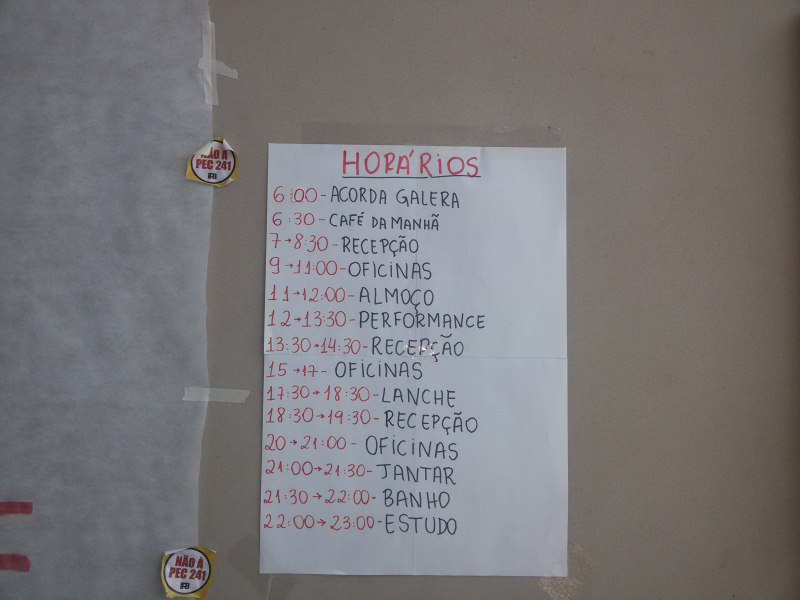 NÃO À
PEC 241
IFB
HORÁRIOS
6:00-ACORDA GALERA
6:30-CAFÉ DA MANHÃ
7→8:30-RECEPÇÃO
9→11:00-OFICINAS
11→12:00-ALMOÇO
12→13:30-PERFORMANCE
13:30→14:30-RECEPÇÃO
15→17- OFICINAS
17:30→18:30-LANCHE
18:30→19:30-RECEPÇÃO
20→21:00- OFICINAS
21:00→21:30-JANTAR
21:30→22:00-BANHO
22:00→23:00-ESTUDO
NÃO À
PEC 241
IFB